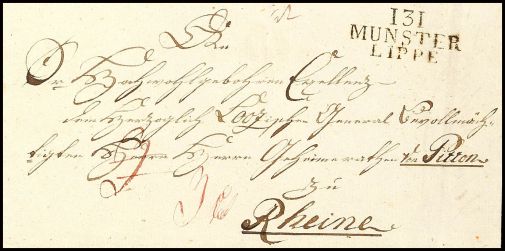 131
MUNSTER
LIPPE
An
Sr Hochwohlgebohren Excellenz
dem Herzoglich Loozischen General Bevollmäch-
tigten Herrn Geheimerathen von Pitton
zu
Rheine